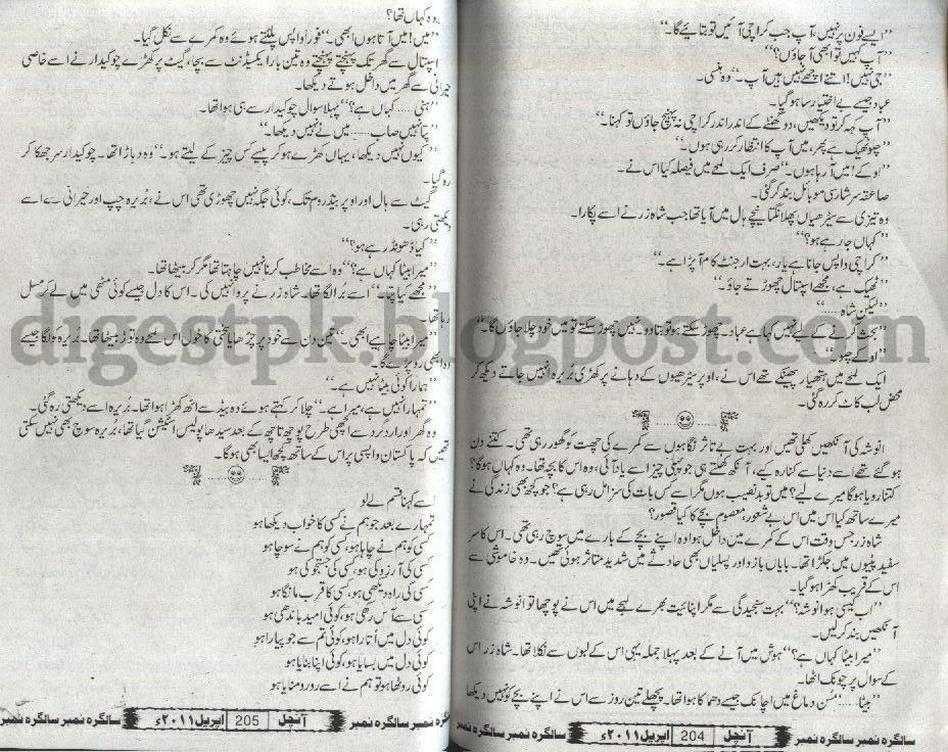 "ایسے فون پر نہیں، آپ جب کراچی آئیں تو بتائیے گا۔"
"آپ کہیں تو ابھی آجاؤں؟"
"جی نہیں! اتنے اچھے نہیں ہیں آپ۔" وہ ہنسی۔
عباد جیسے بے اختیار سا ہوگیا۔
"آپ کہہ کر تو دیکھیں، دو گھنٹے کے اندر اندر کراچی نہ پہنچ جاؤں تو کہنا۔"
"چلو ٹھیک ہے پھر، میں آپ کا انتظار کررہی ہوں۔"
"اوکے! میں آرہا ہوں۔" صرف ایک لمحے میں فیصلہ کیا اس نے۔
صاعقہ سرشار سی موبائل بند کرگئی۔
وہ تیزی سے سیڑھیاں پھلانگتا نیچے ہال میں آیا تھا جب شاہ زر نے اسے پکارا۔
"کہاں جارہے ہو؟"
"کراچی واپس جانا ہے یار، بہت ارجنٹ کام آپڑا ہے۔"
"ٹھیک ہے، مجھے اسپتال چھوڑتے جاؤ۔"
"لیکن شاہ.....
"بحث کرنے کے لیے نہیں کہا ہے عباد۔ چھوڑ سکتے ہو تو بتادو۔ نہیں چھوڑ سکتے تو میں خود چلا جاؤں گا۔"
"اوکے چلو۔"
ایک لمحے میں ہتھیار پھینکے تھے اس نے، اوپر سیڑھیوں کے دہانے پر کھڑی بُریرہ انہیں جاتے دیکھ کر
محض لب کاٹ کر رہ گئی۔
انوشہ کی آنکھیں کھلی تھیں اور بہت بے تاثر نگاہوں سے کمرے کی چھت کو گھور رہی تھی۔ کتنے دن
ہوگئے تھے اسے دنیا سے کنارہ کیے، آنکھ کھلتے ہی جو پہلی چیز اسے یاد آئی، وہ اس کا بچہ تھا۔ وہ کہاں ہوگا؟
کتنا رویا ہوگا میرے لیے؟ میں تو بدنصیب ہوں مگر اسے کس بات کی سزا مل رہی ہے؟ جو کچھ بھی زندگی نے
میرے ساتھ کیا اس میں اس بے شعور، معصوم بچے کا کیا قصور؟
شاہ زر جس وقت اس کے کمرے میں داخل ہوا وہ اپنے بچے کے بارے میں سوچ رہی تھی۔ اس کا سر
سفید پٹیوں میں جکڑا تھا۔ بایاں بازو اور پسلیاں بھی حادثے میں شدید متاثر ہوئی تھیں۔ وہ خاموشی سے
اس کے قریب کھڑا ہوگیا۔
"اب کیسی ہو انوشہ؟" بہت سنجیدگی سے مگر اپنائیت بھرے لہجے میں اس نے پوچھا تو انوشہ نے اپنی
آنکھیں بند کرلیں۔
"میرا بیٹا کہاں ہے؟" ہوش میں آنے کے بعد پہلا جملہ یہی اس کے لبوں سے نکلا تھا۔ شاہ زر اس
کے سوال پر چونک اٹھا۔
"بیٹا..... سُن دماغ میں اچانک جیسے دھماکا ہوا تھا۔ پچھلے تین روز سے اس نے اپنے بچے کو نہیں دیکھا
سالگرہ نمبر سالگرہ نمبر آنچل 204 اپریل ۲۰۱۱ء سالگرہ نمبر سالگرہ نمبر
وہ کہاں تھا؟
"میں! میں آتا ہوں ابھی۔" فوراً واپس پلٹتے ہوئے وہ کمرے سے نکل گیا۔
اسپتال سے گھر تک پہنچتے پہنچتے وہ تین بار ایکسیڈنٹ سے بچا، گیٹ پر کھڑے چوکیدار نے اسے خاصی
حیرانی سے گھر میں داخل ہوتے دیکھا۔
"ہنی..... کہاں ہے؟" پہلا سوال چوکیدار سے ہی ہوا تھا۔
"پتا نہیں صاب..... میں نے نہیں دیکھا۔"
"کیوں نہیں دیکھا، یہاں کھڑے ہوکر پیسے کس چیز کے لیتے ہو۔" وہ دہاڑا تھا۔ چوکیدار سر جھکا کر
رہ گیا۔
گیٹ سے ہال اور اوپر بیڈروم تک، کوئی جگہ نہیں چھوڑی تھی اس نے، بُریرہ چپ اور حیرانی سے اسے
دیکھتی رہی۔
"کیا ڈھونڈ رہے ہو؟"
"میرا بیٹا کہاں ہے؟" وہ اسے مخاطب کرنا نہیں چاہتا تھا مگر کر بیٹھا تھا۔
"مجھے کیا پتا۔" اسے بُرا لگا تھا۔ شاہ زر نے پروا نہیں کی۔ اس کا دل جیسے کوئی مٹھی میں لے کر مسل
رہا تھا۔
"میرا بیٹا چاہیے ابھی۔" تین دن سے خود پر چڑھایا سختی کا خول اس لمحے وہ توڑ بیٹھا تھا۔ بُریرہ کو لگا جیسے
وہ ابھی رو پڑے گا۔
"ہمارا کوئی بیٹا نہیں ہے۔"
"تمہارا نہیں ہے، میرا ہے۔" چلا کر کہتے ہوئے وہ بیڈ سے اٹھ کھڑا ہوا تھا۔ بُریرہ اسے دیکھتی رہ گئی۔
وہ گھر اور اردگرد سے اچھی طرح پوچھ تاچھ کے بعد سیدھا پولیس اسٹیشن گیا تھا، بُریرہ سوچ بھی نہیں سکتی
تھی کہ پاکستان واپسی پر اس کے ساتھ کچھ ایسا بھی ہوگا۔
اسے کہنا قسم لے لو
تمہارے بعد جو ہم نے کسی کا خواب دیکھا ہو
کسی کو ہم نے چاہا ہو، کسی کو ہم نے سوچا ہو
کسی کی آرزو کی ہو، کسی کی جستجو کی ہو
کسی کی راہ دیکھی ہو، کسی کا قرب مانگا ہو
کسی سے آس رکھی ہو، کوئی امید باندھی ہو
کوئی دل میں اُتارا ہو، کوئی تم سے جو پیارا ہو
کوئی دل میں بسایا ہو، کوئی اپنا بنایا ہو
کوئی روٹھا ہو تو ہم نے اسے رو رو منایا ہو
سالگرہ نمبر سالگرہ نمبر آنچل 205 اپریل ۲۰۱۱ء سالگرہ نمبر سالگرہ نمبر
digestpk.blogpost.com